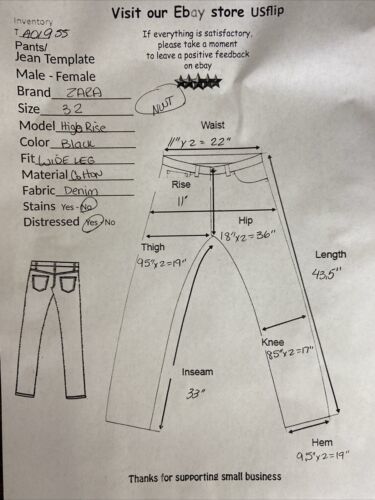 Visit our Ebay store USflip
Inventory
T A01955
If everything is satisfactory,
please take a moment
to leave a positive feedback
on ebay
Pants/
Jean Template
Male - Female
Brand ZARA
Size 32
NWT
Model High Rise
Color Black
Fit WIDE LEG
Material Cotton
Fabric Denim
Stains Yes - No
Distressed Yes - No
Waist
11"x2 = 22"
Rise
11"
Hip
18"x2=36"
Thigh
9.5"x2=19"
Length
43.5"
Knee
8.5"x2=17"
Inseam
33"
Hem
9.5"x2=19"
Thanks for supporting small business